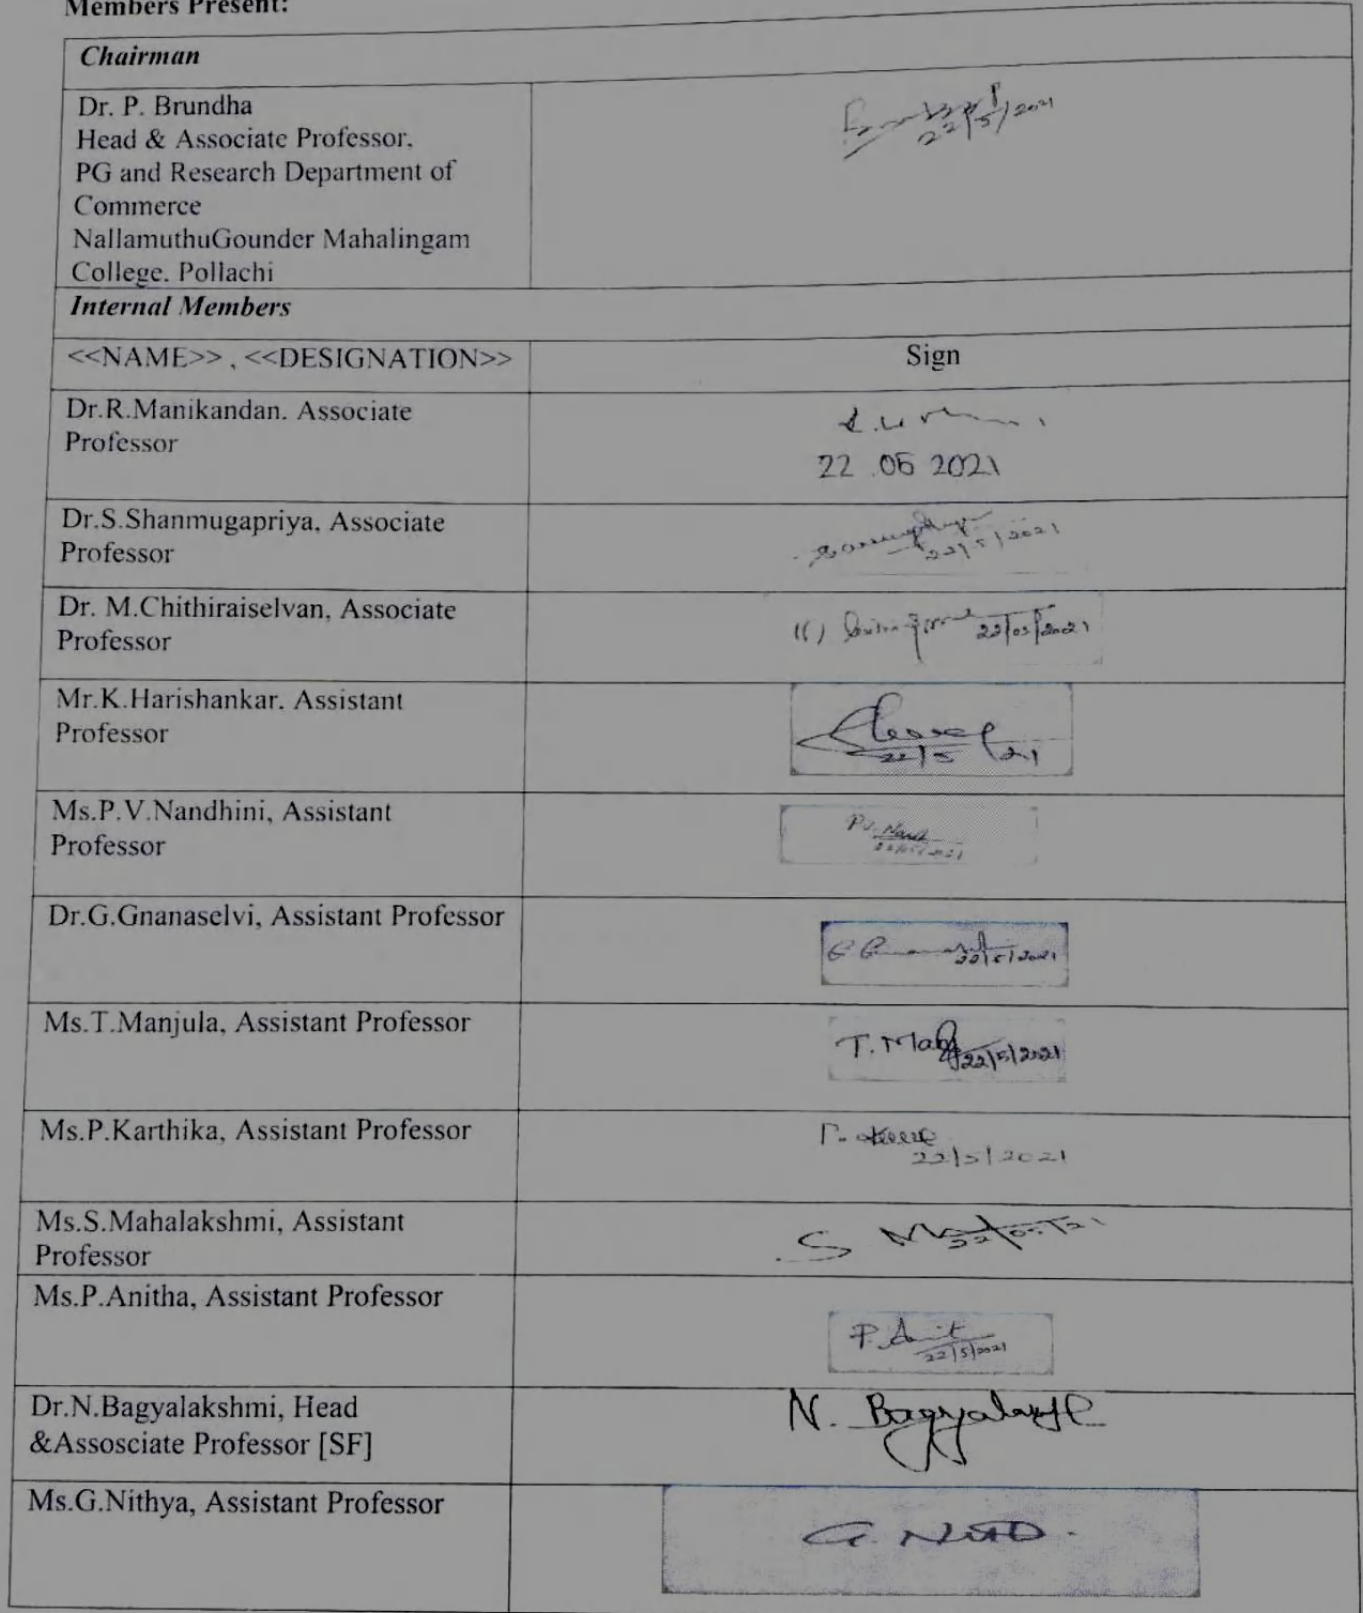 Members Present:
Chairman
Dr. P. Brundha
Head & Associate Professor,
PG and Research Department of
Commerce
NallamuthuGounder Mahalingam
College. Pollachi
22/5/2021
Internal Members
<<NAME>> , <<DESIGNATION>>
Sign
Dr.R.Manikandan. Associate
Professor
22.05 2021
Dr.S.Shanmugapriya, Associate
Professor
22/5/2021
Dr. M.Chithiraiselvan, Associate
Professor
22/05/2021
Mr.K.Harishankar. Assistant
Professor
22/5/21
Ms.P.V.Nandhini, Assistant
Professor
22/05/2021
Dr.G.Gnanaselvi, Assistant Professor
22/5/2021
Ms.T.Manjula, Assistant Professor
T. Manj
22/5/2021
Ms.P.Karthika, Assistant Professor
22/5/2021
Ms.S.Mahalakshmi, Assistant
Professor
S
22/05/21
Ms.P.Anitha, Assistant Professor
P. Anit
22/5/2021
Dr.N.Bagyalakshmi, Head
&Assosciate Professor [SF]
N.
Ms.G.Nithya, Assistant Professor
G.